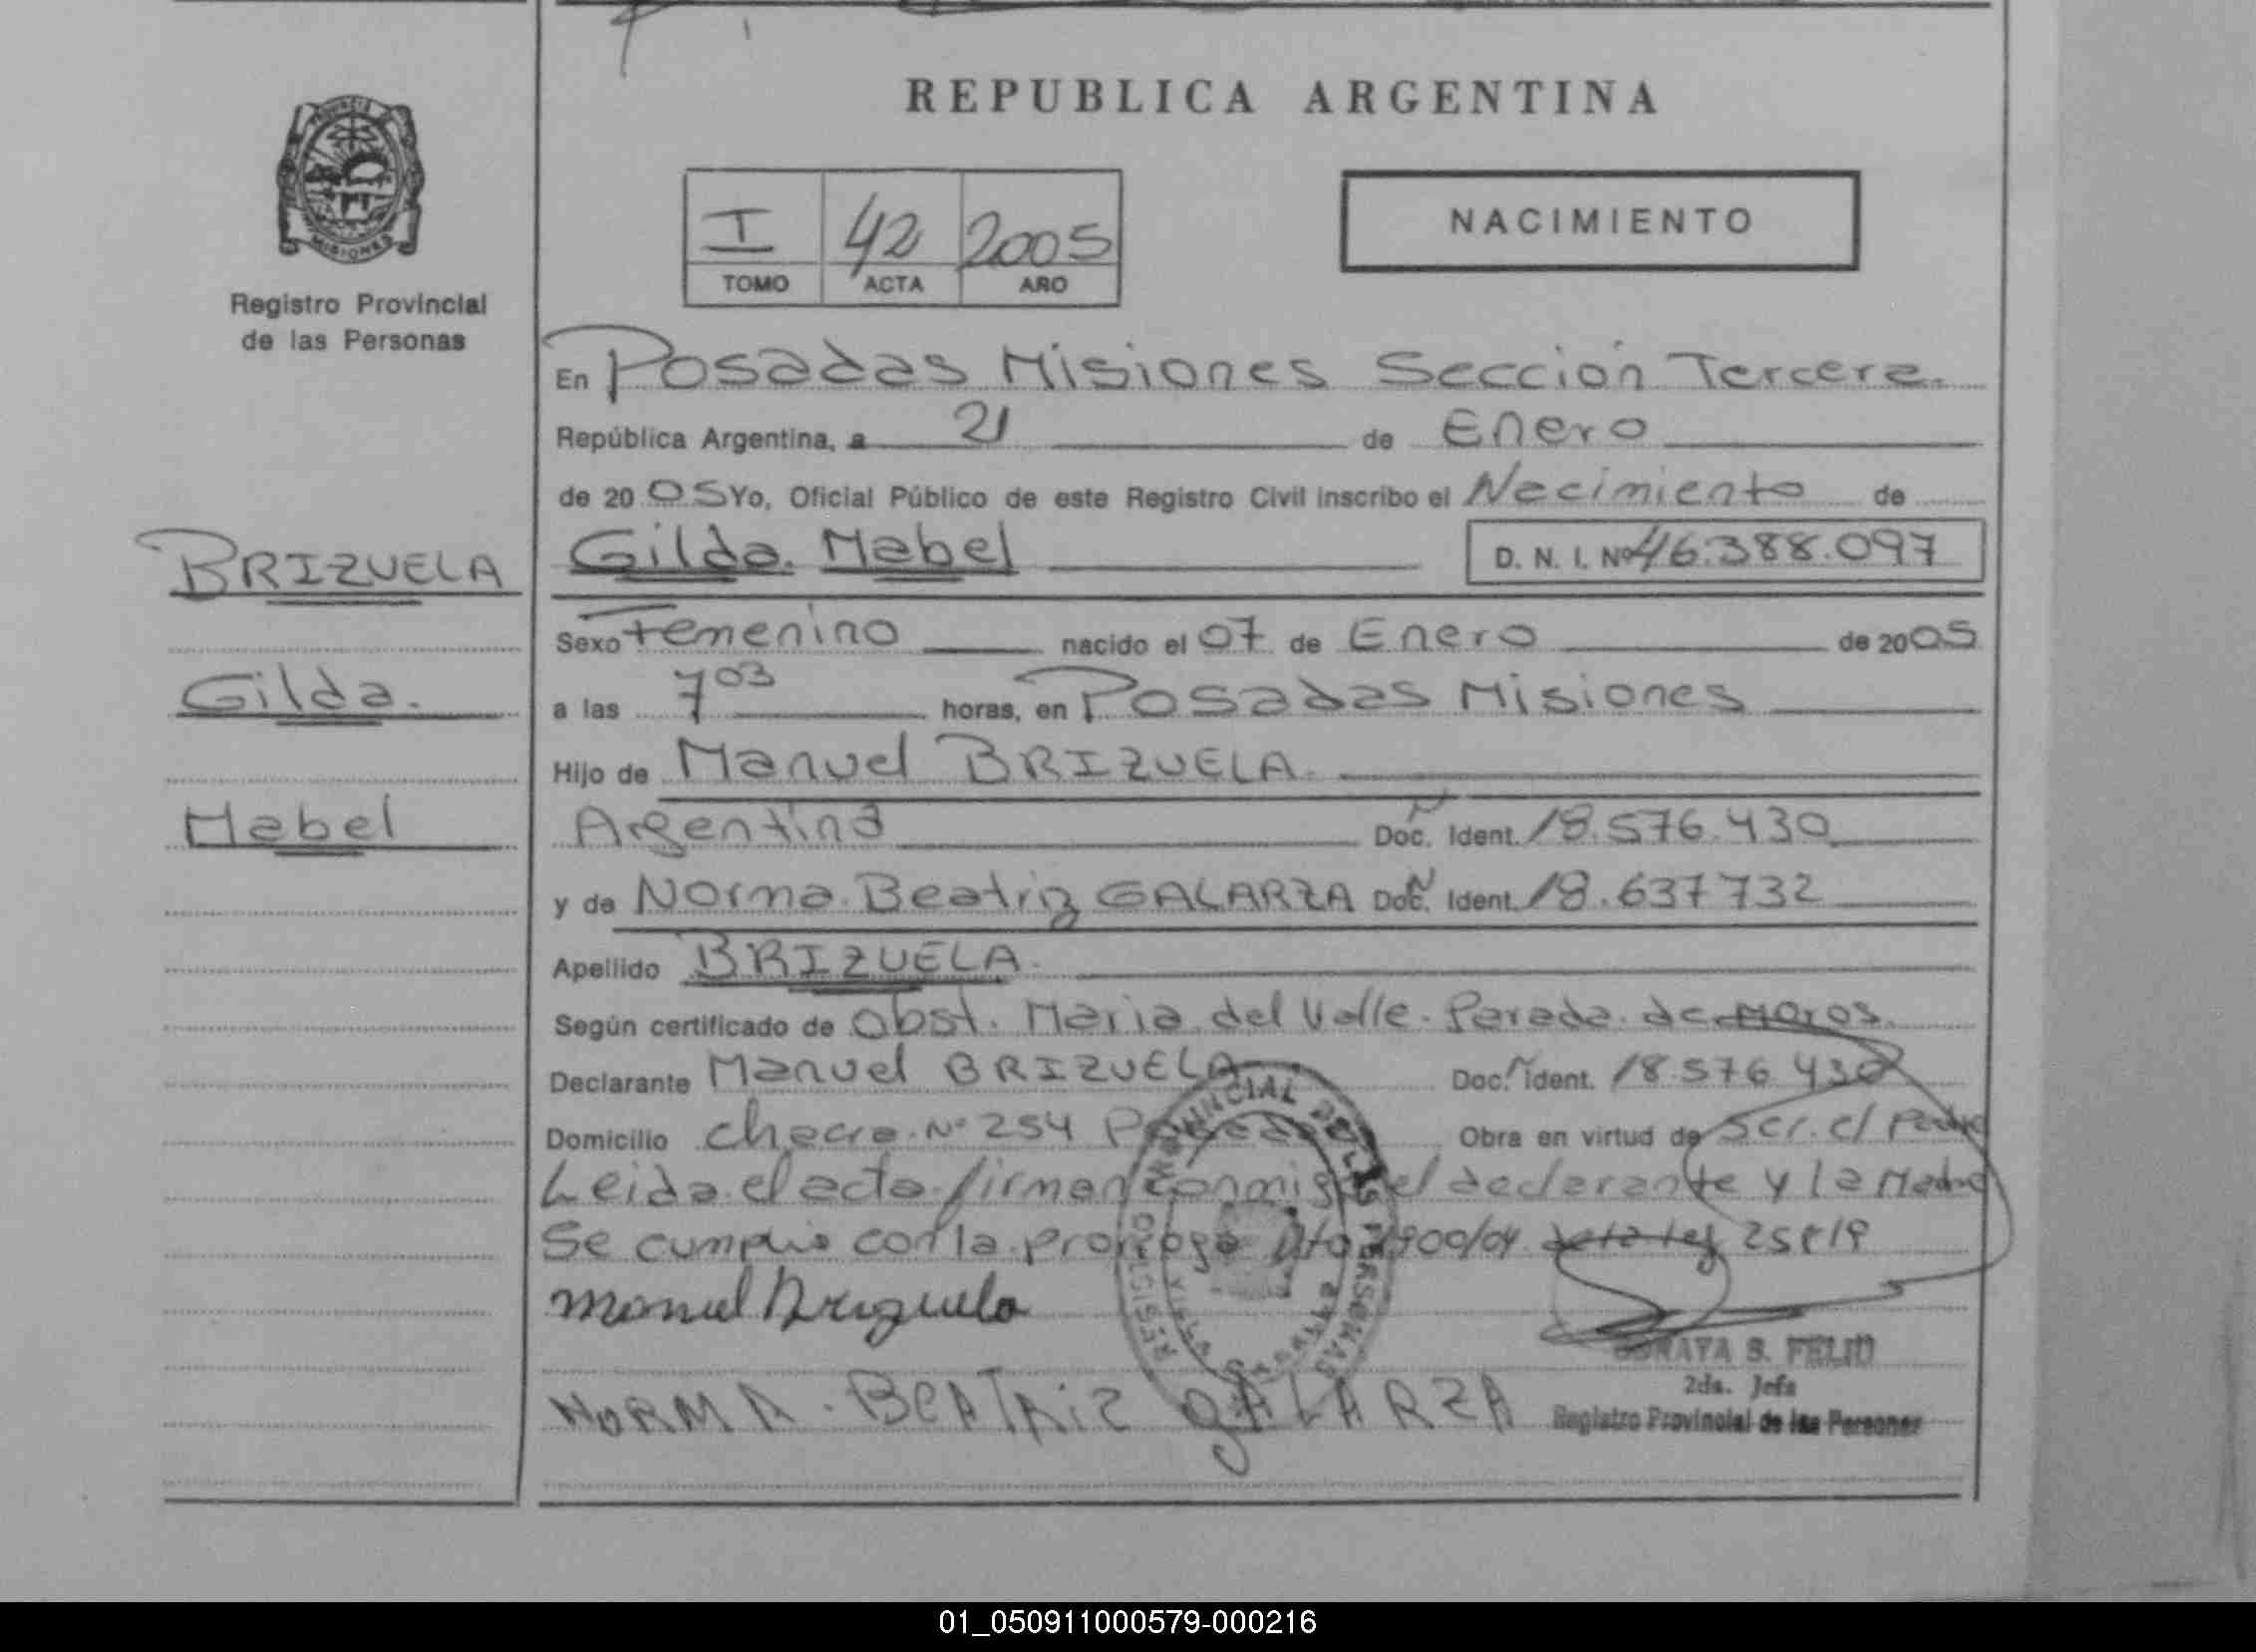 REPUBLICA ARGENTINA
PROVINCIA
MISIONES
Registro Provincial
de las Personas
I 42 2005
TOMO ACTA AÑO
NACIMIENTO
En Posadas Misiones Sección Tercera
República Argentina, a 21 de Enero
de 2005 Yo, Oficial Público de este Registro Civil inscribo el Nacimiento de
BRIZUELA
Gilda
Mabel
Gilda Mabel D. N. I. Nº 46.388.097
Sexo Femenino nacido el 07 de Enero de 2005
a las 7 03 horas, en Posadas Misiones
Hijo de Manuel BRIZUELA
Argentina Doc. Ident. 18.576.430
y de Norma Beatriz GALARZA Doc. Ident. 18.637732
Apellido BRIZUELA
Según certificado de Obst. Maria del Valle Parada de Moros
Declarante Manuel BRIZUELA Doc. Ident. 18 576 430
Domicilio Chacra Nº 254 Posadas Obra en virtud de Scr. c/ Padre
Leida el acta firman conmigo el declarante y la Madre
Se cumplio con la prorroga Dto 1900/04 de la ley 25819
Manuel Brizuela
NORMA BEATRIZ GALARZA
SORAYA S. FELIU
2da. Jefa
Registro Provincial de las Personas
01_050911000579-000216